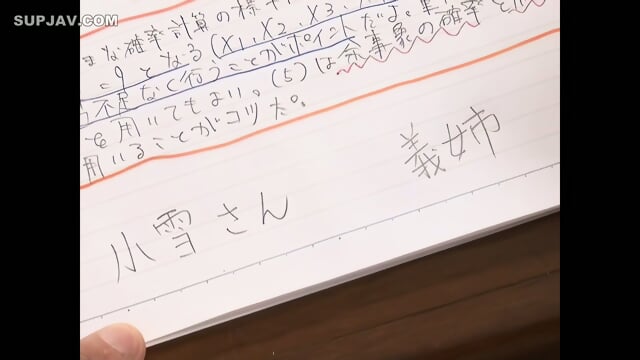 SUPJAV.COM
な確率計算の様
=9となる(X1,X2,X3,
不足なく行うことがポイントだよ。
を用いてもよい。(5)は余事象の確率を
用いることがコツだ。
義姉
小雪さん